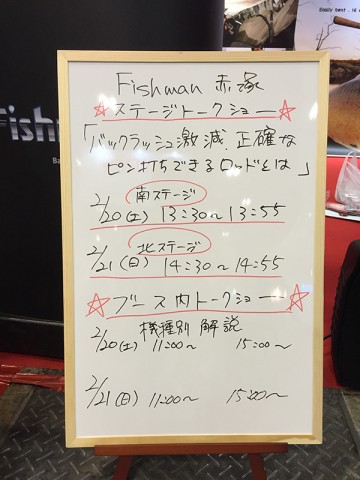 Fishman 赤塚
☆ステージトークショー☆
「バックラッシュ激減、正確な
ピン打ちできるロッドとは」
南ステージ
2/20(土) 13:30〜13:55
北ステージ
2/21(日) 14:30〜14:55
☆ブース内トークショー☆
機種別 解説
2/20(土) 11:00〜 15:00〜
2/21(日) 11:00〜 15:00〜
Fishm